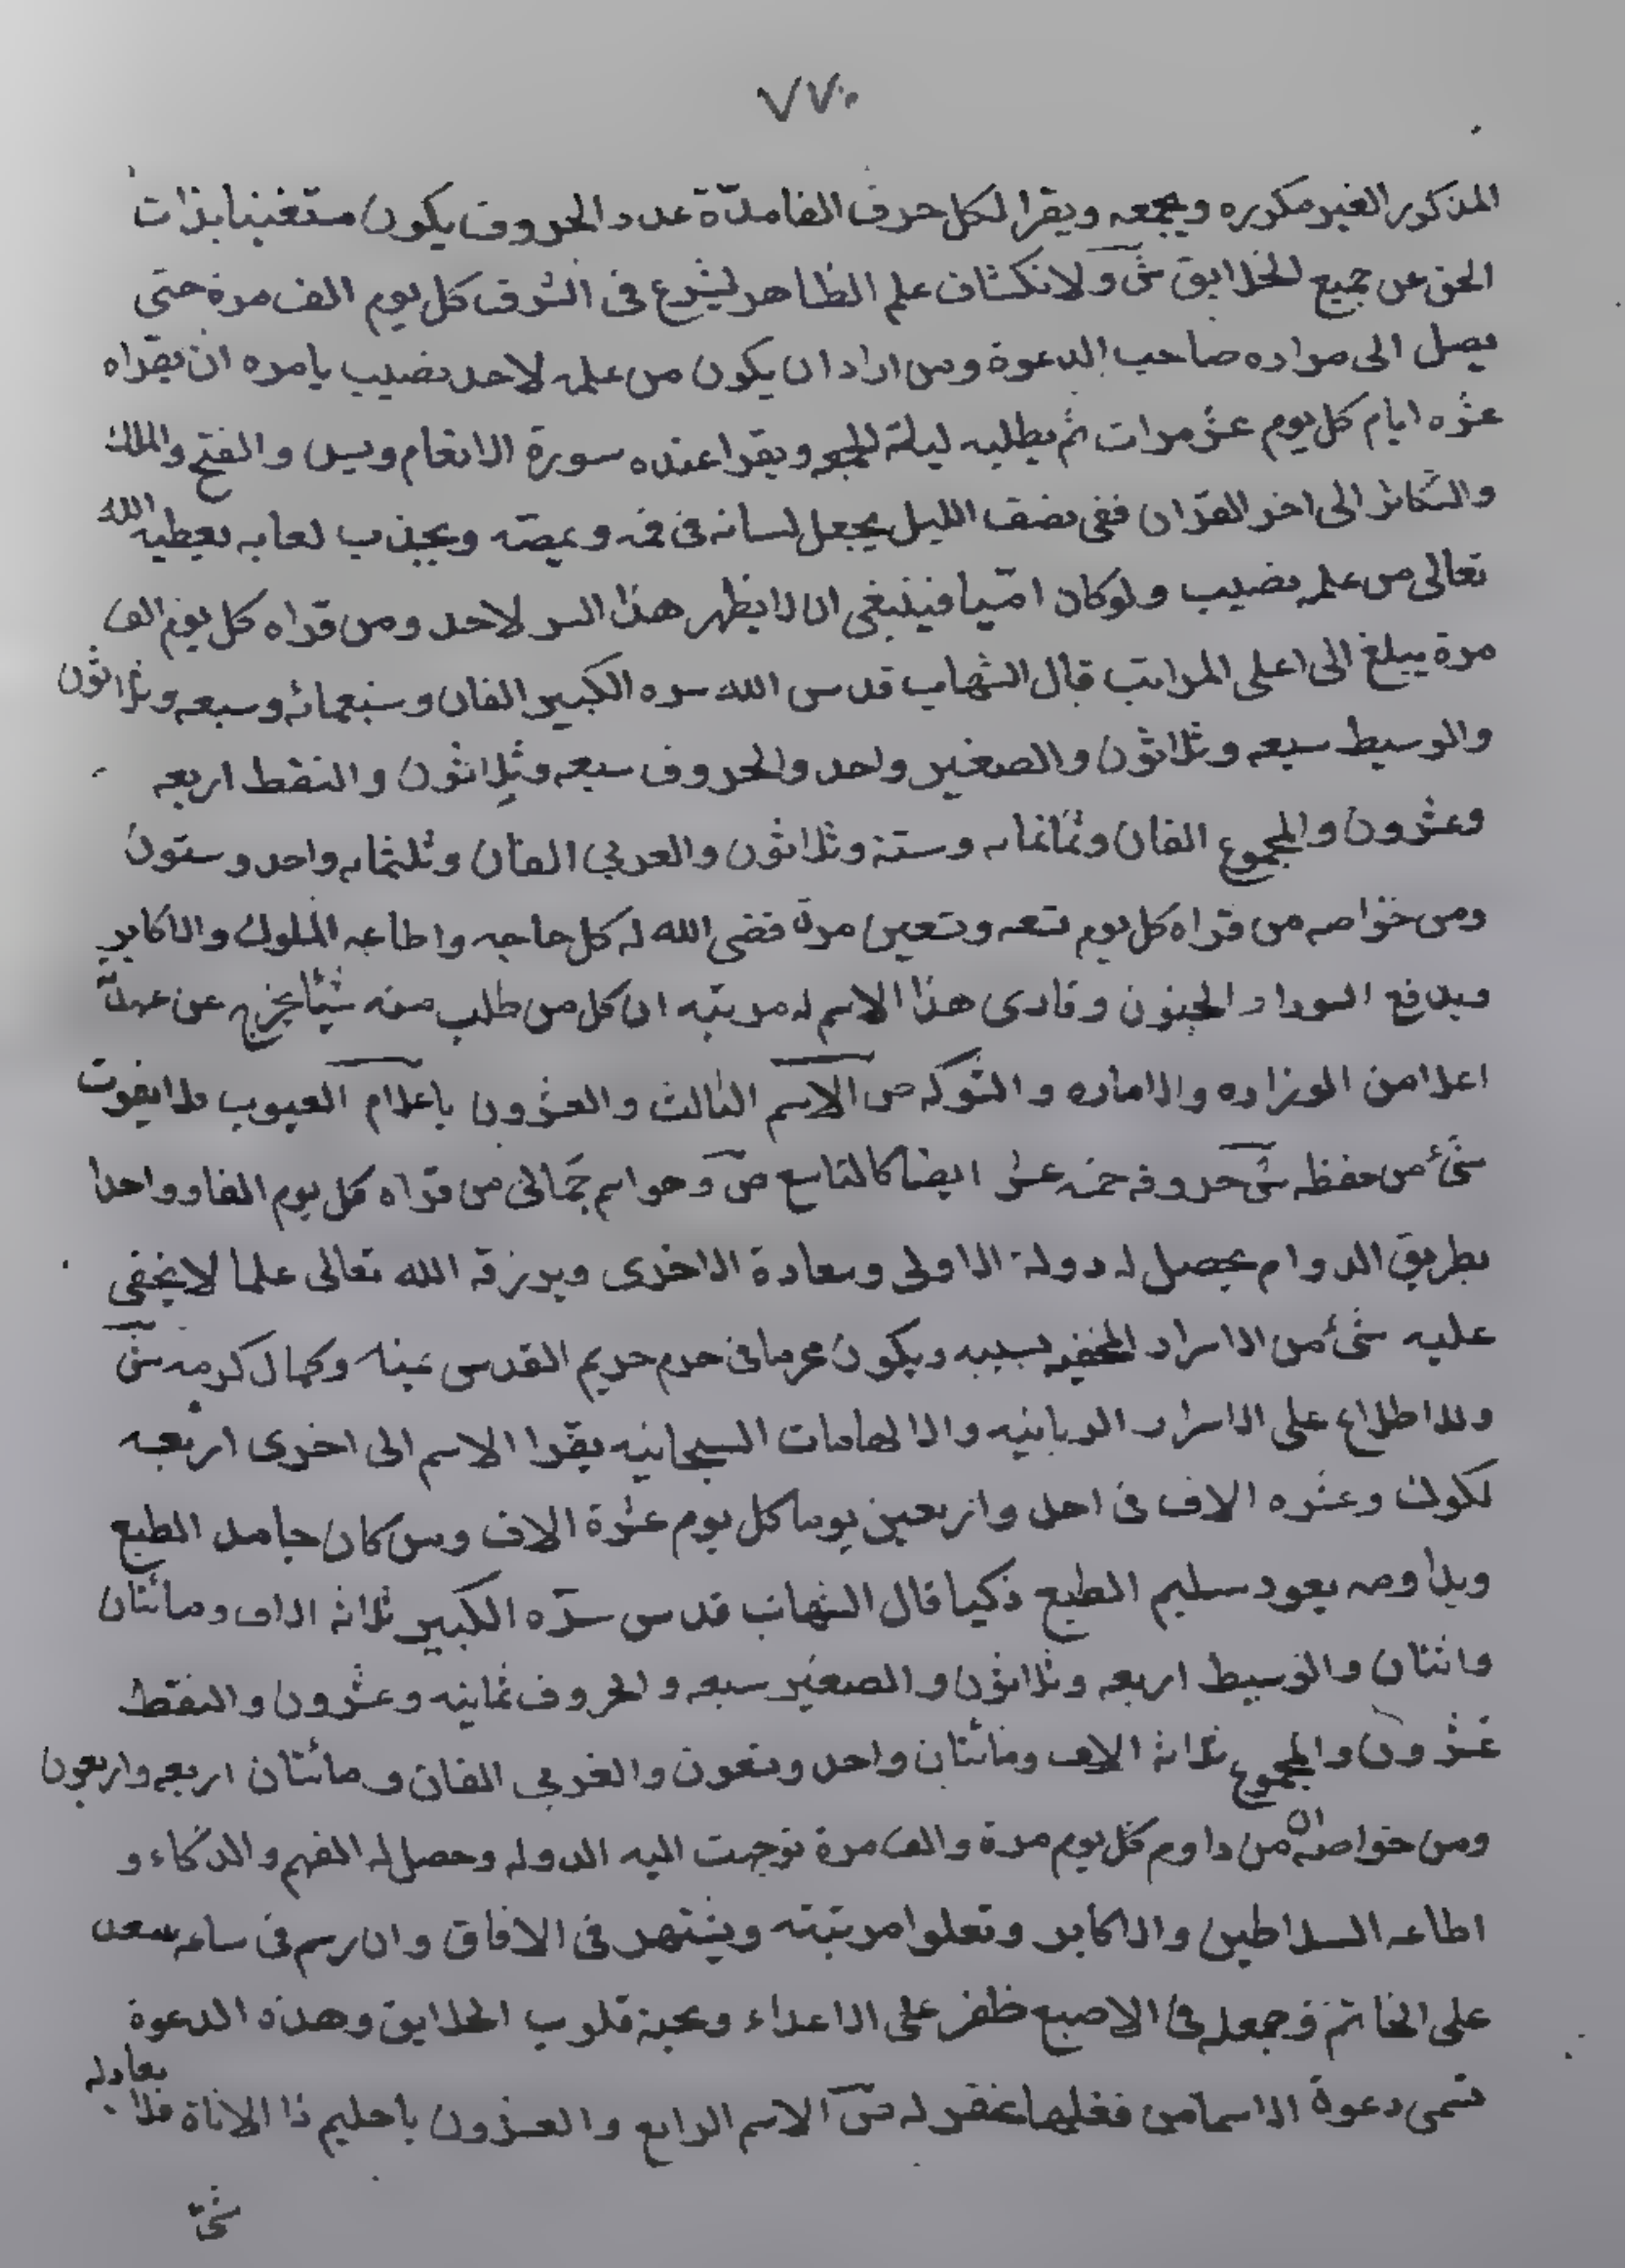 ٧٧٠
المذكور الغير مكرره ويجمعه ويقرا لكل حرف الفا مدّة عدد الحروف يكون مستغنيا بذات
الحق عن جميع الخلايق ش ولانكشاف علم الظاهر ليشرع فى الشرف كل يوم الف مرة حتى
يصل الى مراده صاحب الدعوة ومن اراد ان يكون من علمه لاحد نصيب يامره ان يقراه
عشره ايام كل يوم عشر مرات ثم يطلبه ليلة الجمعه ويقرا عنده سورة الانعام ويس والفتح والملك
والتكاثر الى اخر القران ففى نصف الليل يجعل لسانه فى فمه ويمصّه ويجذب لعابه يعطيه الله
تعالى من علمه نصيب ولوكان امّيا فينبغى ان لا يظهر هذا السر لاحد ومن قراه كل يوم الف
مرة يبلغ الى اعلى المراتب قال الشهاب قدس الله سره الكبير الفان وسبعمائه وسبعه وثلاثون
والوسيط سبعه وثلاثون والصغير واحد والحروف سبعه وثلاثون والنقط اربعه
وعشرون والمجموع الفان وثمانمايه وستة وثلاثون والعربي الفان وثلثمايه واحد وستون
ومن خواصه من قراه كل يوم تسعه وتسعين مرة قضى الله له كل حاجه واطاعه الملوك والاكابر
ويدفع السودا والجنون وقارى هذا الاسم له مرتبه ان كل من طلب منه شيئا يخرج عن عهدة
اعلا من الوزاره والاماره والشوكه ص الاسم الثالث والعشرون ياعلام الغيوب فلا يفوت
شئ من حفظه ش حروفه خمسه عشر ايضا كالتاسع ص وهو اسم جمالى من قراه كل يوم الفا وواحدا
بطريق الدوام يحصل له دولة الاولى وسعادة الاخرى ويرزقه الله تعالى علما لايخفى
عليه شئ من الاسرار المخفيه بسببه ويكون محرما فى حرم حريم القدسى بمنه وكمال كرمه ش
وللاطلاع على الاسرار الربانيه والالهامات السبحانيه يقرا الاسم الى اخرى اربعه
لكوك وعشره الاف فى احد واربعين يوما كل يوم عشرة الاف ومن كان جامد الطبع
ويداومه يعود سليم الطبع ذكيا قال الشهاب قدس سرّه الكبير ثلاثة الاف ومائتان
واثنتان والوسيط اربعه وثلاثون والصغير سبعه والحروف ثمانيه وعشرون والنقط
عشرون والمجموع ثلاثة الاف ومائتان واحد وتسعون والعربي الفان ومائتان اربعه واربعون
ومن خواصه ان من داوم كل يوم مرة والف مرة توجهت اليه الدوله وحصل له الفهم والذكاء و
اطاعه السلاطين والاكابر وتعلوا مرتبته ويشتهر فى الافاق وان رسم فى ساعه سعد
على الخاتم وجعله فى الاصبع ظفر على الاعداء ومحبة قلوب الخلايق وهذه الدعوة
تسمى دعوة الاسما من فعلها غفر له ص الاسم الرابع والعشرون ياحليم ذا الاناة فلا يعادله
شئ